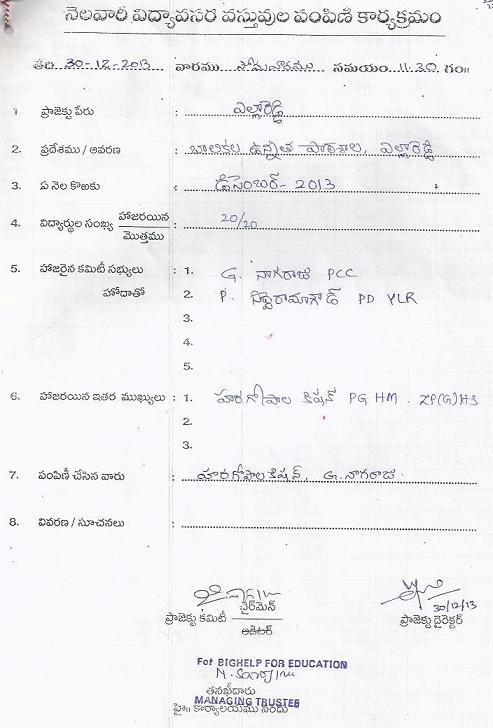 నెలవారీ విద్యావసర వస్తువుల పంపిణీ కార్యక్రమం
తేది 30-12-2013 వారము సోమవారము సమయం 11.30 గం॥
1 ప్రాజెక్టు పేరు : ఎల్లారెడ్డి
2. ప్రదేశము / ఆవరణ : బాలికల ఉన్నత పాఠశాల, ఎల్లారెడ్డి
3. ఏ నెల కొఱకు : డిసెంబర్ - 2013
4. విద్యార్థుల సంఖ్య హాజరయిన / మొత్తము : 20/20
5. హాజరైన కమిటీ సభ్యులు : 1. G. నాగరాజు PCC
హోదాతో 2. P. సిద్దిరామాగౌడ్ PD YLR
3.
4.
5.
6. హాజరయిన ఇతర ముఖ్యులు : 1. హరగోపాల కిషన్ PG HM . ZP(G)HS
2.
3.
7. పంపిణీ చేసిన వారు : హరగోపాల కిషన్, G. నాగరాజు.
8. వివరణ / సూచనలు :
30/12/13
ప్రాజెక్టు కమిటీ చైర్‌మెన్ / ఆడిటర్ ప్రాజెక్టు డైరెక్టర్
For BIGHELP FOR EDUCATION
M. Sarojini
తనఖీదారు
MANAGING TRUSTEE
హై॥ కార్యాలయము నందు